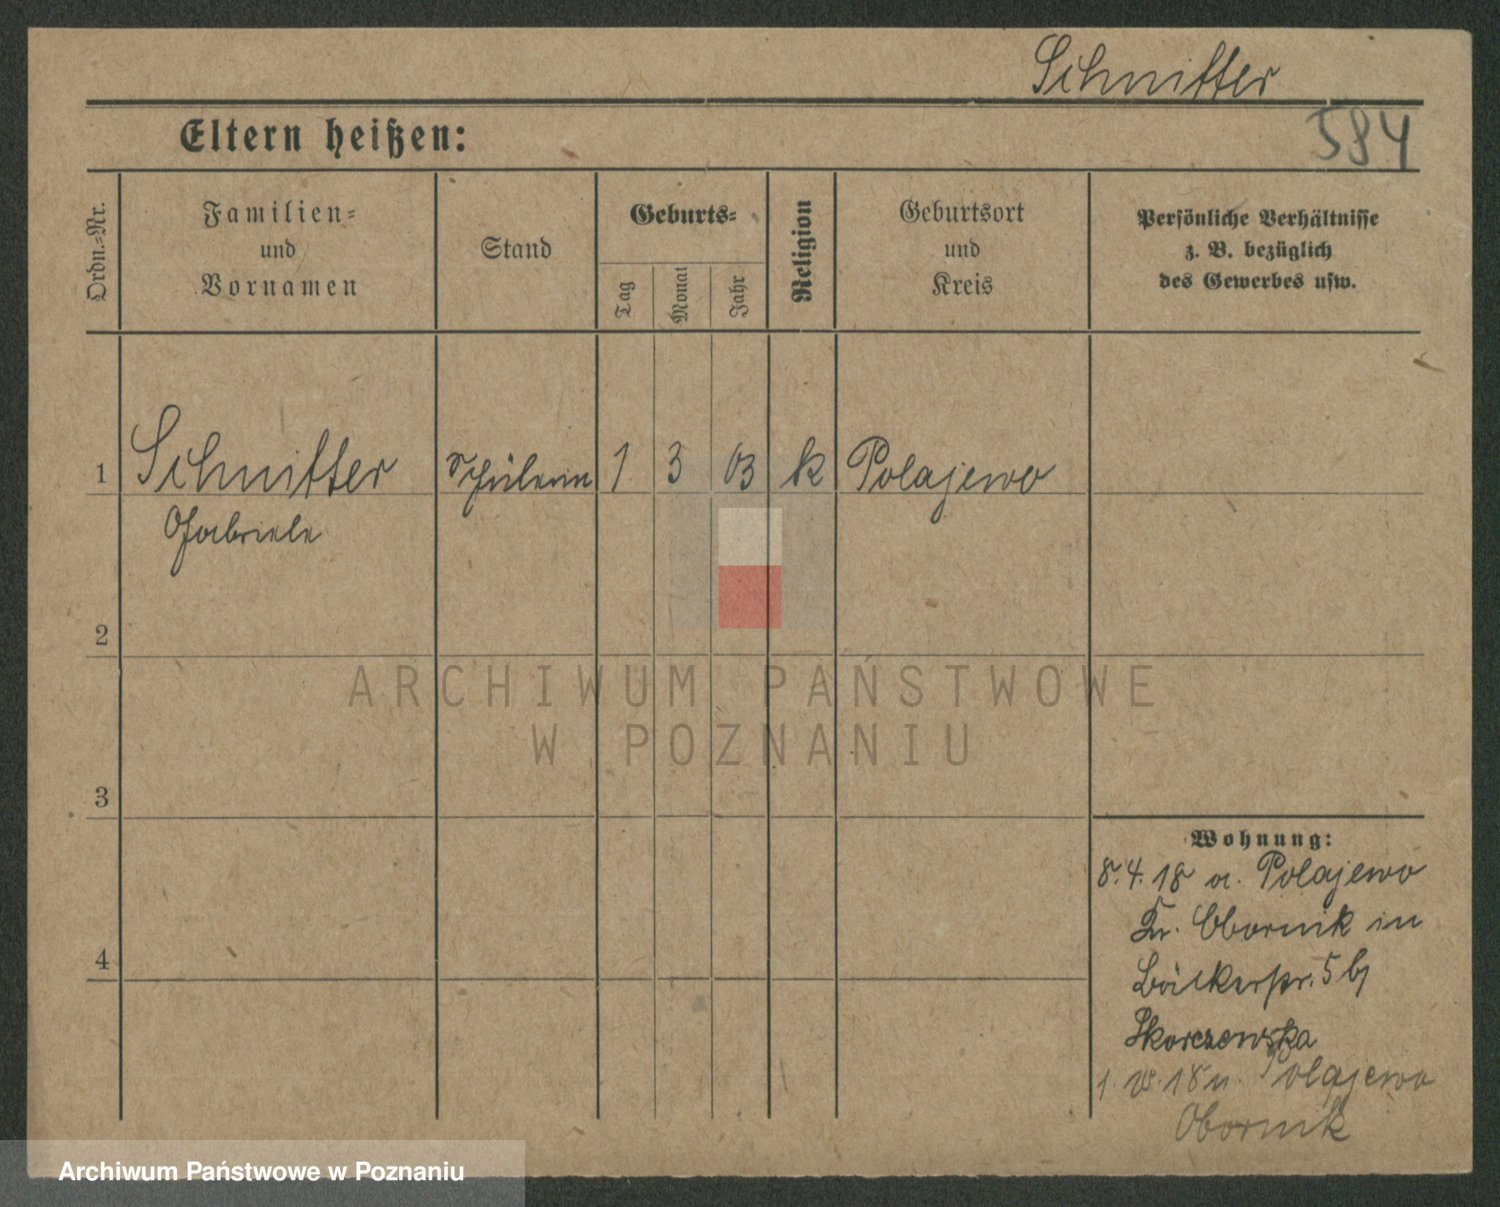 Schnitter
584
Eltern heißen:
Ordn.-Nr.
Familien-
und
Vornamen
Stand
Geburts-
Tag
Monat
Jahr
Religion
Geburtsort
und
Kreis
Persönliche Verhältnisse
z. B. bezüglich
des Gewerbes usw.
1 Schnitter Schülerin 1 3 03 k Polajewo
Gabriele
2
3
4
Wohnung:
8.4.18 a. Polajewo
Kr. Obornik in
Bäckerstr. 5 b/
Skorczewska
1. 18 n. Polajewo
Obornik
ARCHIWUM PAŃSTWOWE
W POZNANIU
Archiwum Państwowe w Poznaniu